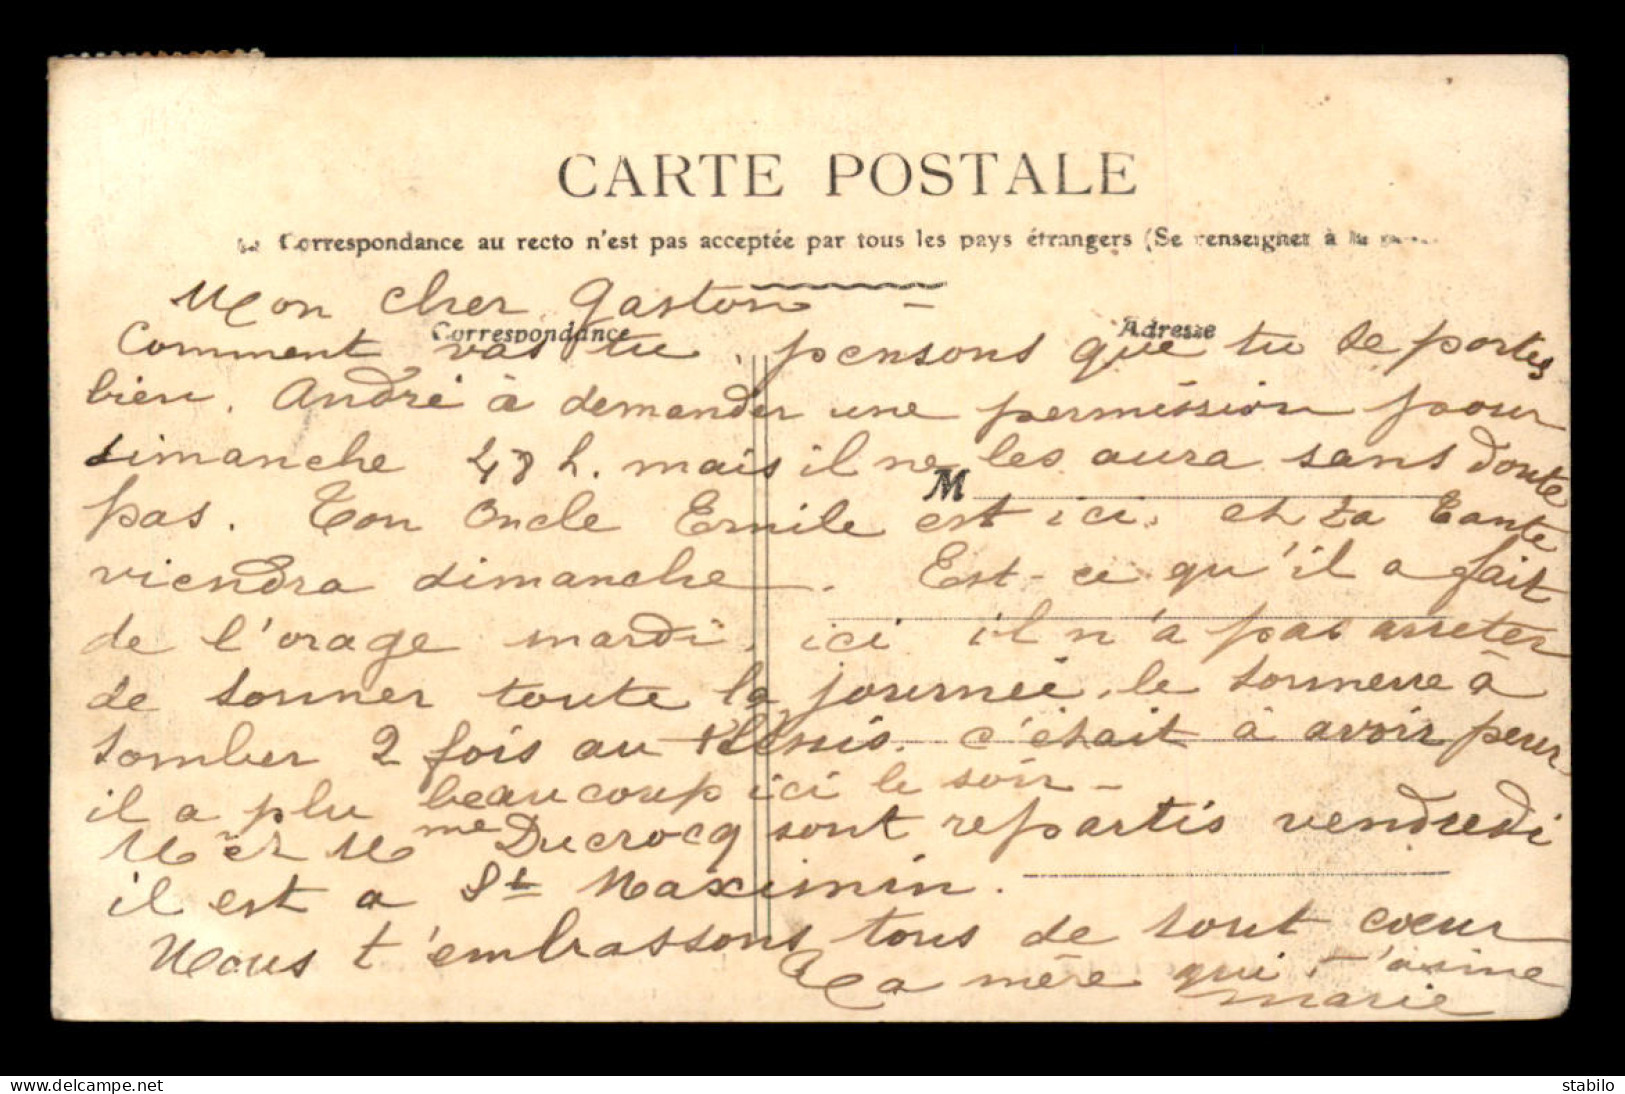 CARTE POSTALE
Correspondance au recto n'est pas acceptée par tous les pays étrangers (Se renseigner à la
Mon cher Gaston
Correspondance
Adresse
Comment vas tu, pensons que tu te portes
bien. André à demander une permission pour
dimanche 48 h. mais il ne les aura sans doute
M
pas. Ton Oncle Emile est ici. et ta tante
viendra dimanche. Est-ce qu'il a fait
de l'orage mardi, ici il n'a pas arreter
de tonner toute la journée, le tonnerre à
tomber 2 fois au Plessis. c'était à avoir peur
il a plu beaucoup ici le soir -
Mr et Mme Ducrocq sont repartis vendredi
il est a St Maximin.
Nous t'embrassons tous de tout cœur
Ta mère qui t'aime
Marie
delcampe.net
stabilo